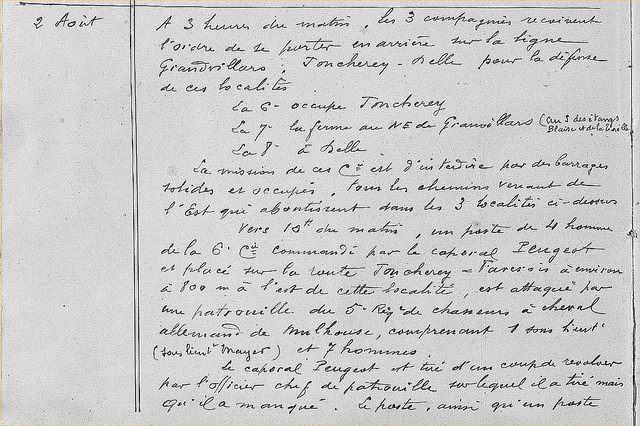 2 Août
A 3 heures du matin, les 3 compagnies reçoivent
l'ordre de se porter en arrière sur la ligne
Grandvillars, Joncherey-Delle pour la défense
de ces localités
La 6e occupe Joncherey
La 7e la ferme au NE de Grandvillars (au S des étangs
Blaise et de la
La 8e à Delle
La mission de ces Cies est d'interdire par des barrages
solides et occupés, tous les chemins venant de
l'Est qui aboutissent dans les 3 localités ci-dessus
Vers 10h du matin, un poste de 4 hommes
de la 6e Cie commandé par le caporal Peugeot
et placé sur la route Joncherey = Faverois à environ
à 800 m à l'est de cette localité, est attaqué par
une patrouille du 5e Régt de chasseurs à cheval
allemand de Mulhouse, comprenant 1 sous lieut
(sous lieutt Mayer) et 7 hommes
Le caporal Peugeot est tué d'un coup de revolver
par l'officier chef de patrouille sur lequel il a tiré mais
qu'il a manqué. Le poste, ainsi qu'un poste